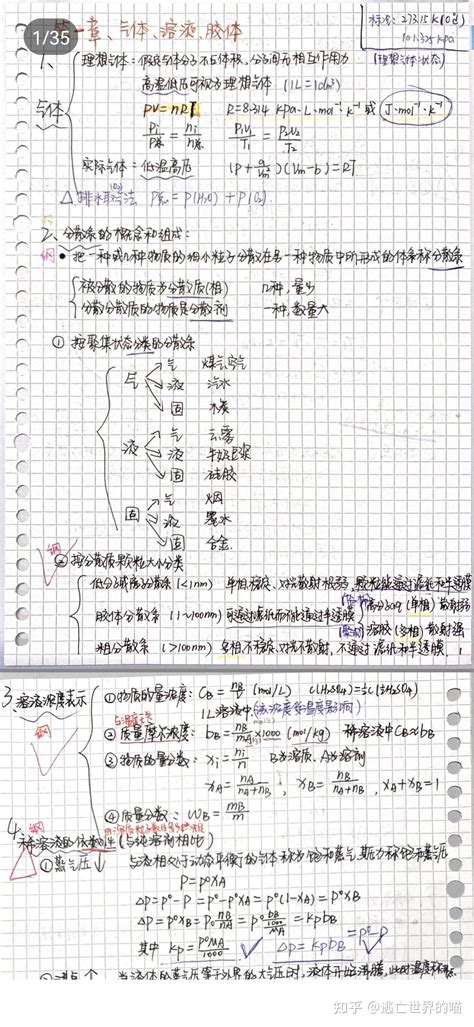 1/35
第一章、气体、溶液、胶体
标况: 273.15K(0℃)
101.325 kPa
(理想气体状态)
1、气体
理想气体: 假设气体分子不占体积, 分子间无相互作用力
高温低压可视为理想气体 (1L=1dm³)
PV=nRT R=8.314 kPa·L·mol⁻¹·K⁻¹ 或 J·mol⁻¹·K⁻¹
Pi/P总 = ni/n总 P₁V₁/T₁ = P₂V₂/T₂
实际气体: 低温高压 (P+a/Vm²)(Vm-b)=RT
△ 排水取气法 (O₂) P总=P(H₂O)+P(O₂)
2、分散系的概念和组成:
纲 • 把一种或几种物质的细小粒子分散在另一种物质中所形成的体系称分散系
被分散的物质为分散质(相) 几种, 量少
分散分散质的物质是分散剂 一种, 数量大
① 按聚集状态分类的分散系
气 气 煤气空气
液 汽水
固 木炭
液 气 云雾
液 牛奶豆浆
固 硅胶
固 气 烟
液 墨水
固 合金
纲
② 按分散质颗粒大小分类
低分子或离子分散系 (<1nm) 单相稳定、对光散射极弱, 颗粒能透过滤纸和半透膜
胶体分散系 (1~100nm) 可透过滤纸而不能透过半透膜
高分子溶液 (单相) 散射弱
溶胶 (多相) 散射强
粗分散系 (>100nm) 多相不稳定、对光不散射, 不透过滤纸和半透膜
3.溶液浓度表示
纲
① 物质的量浓度: CB=nB/V (mol/L) c(H₂SO₄)=½c(½H₂SO₄)
1L溶液中 (该浓度受温度影响)
与温度无关
② 质量摩尔浓度: bB=nB/mA×1000 (mol/kg) 稀溶液中CB≈bB
③ 物质的量分数: xi=ni/n B为溶质, A为溶剂
xA=nA/(nA+nB), xB=nB/(nA+nB), xA+xB=1
④ 质量分数: ωB=mB/m
4、纲
稀溶液的依数性 (与纯溶剂相比)
① 蒸气压↓ 与液相处于动态平衡的气体称为饱和蒸气, 其压力称饱和蒸气压
P=P°xA
ΔP=P°-P=P°-P°xA=P°(1-xA)=P°xB
ΔP=P°xB=P°nB/nA=P°bB/(1000/MA)=kpbB
其中 kp=P°MA/1000 ΔP=kpbB=P°-P
② 沸点↑ 当液体的蒸气压等于外界的大气压时, 液体开始沸腾, 此时温度称沸点
知乎 @逃亡世界的喵